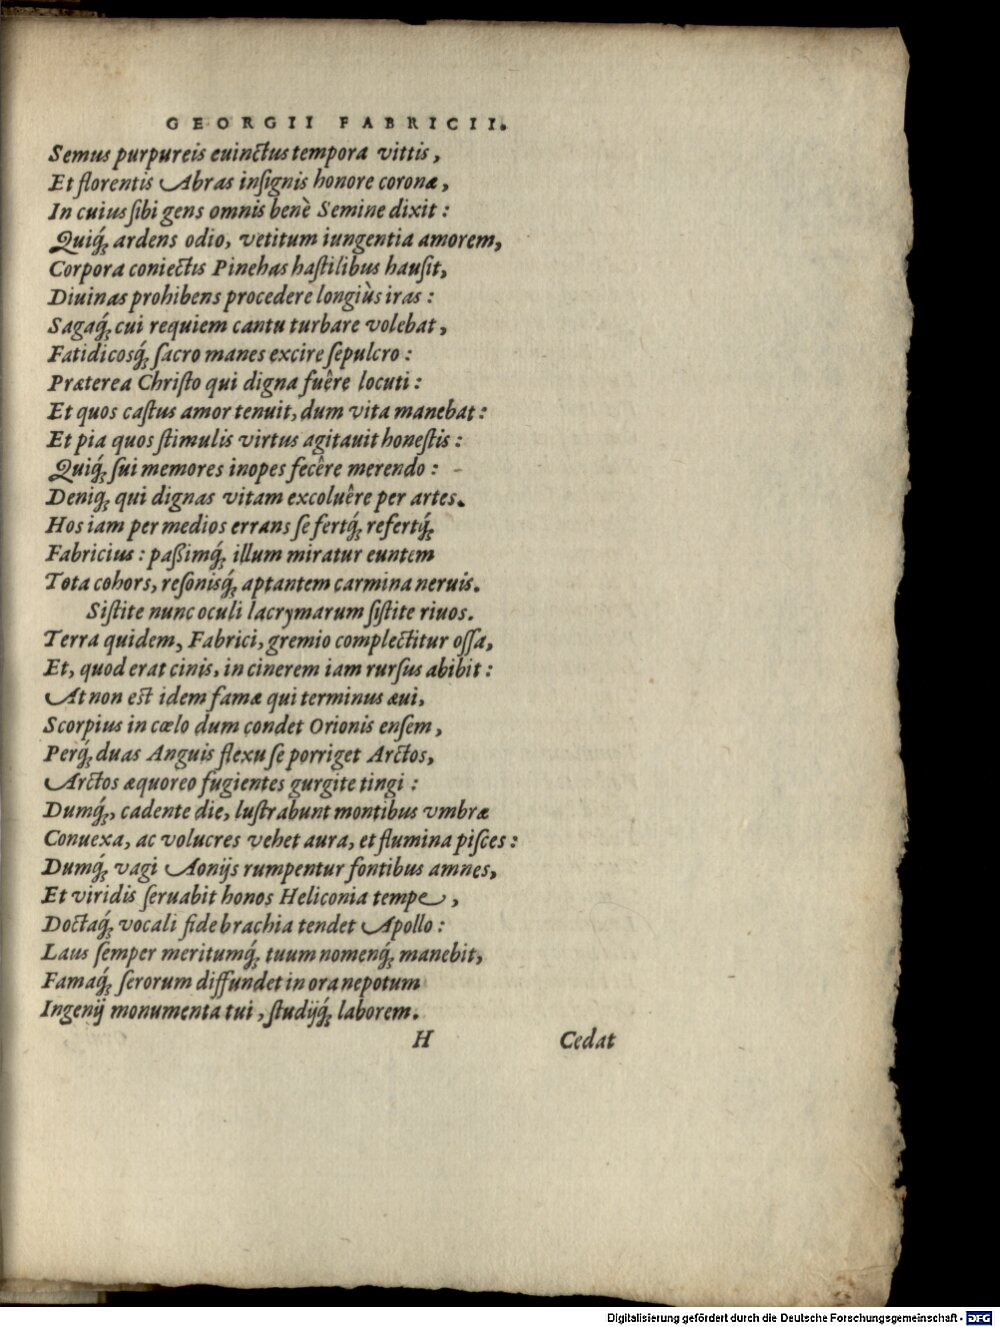 GEORGII FABRICII.
Semus purpureis euinctus tempora vittis,
Et florentis Abras insignis honore coronæ,
In cuius sibi gens omnis benè Semine dixit:
Quiq́; ardens odio, vetitum iungentia amorem,
Corpora coniectis Pinehas hastilibus hausit,
Diuinas prohibens procedere longiùs iras:
Sagaq́; cui requiem cantu turbare volebat,
Fatidicosq́; sacro manes excire sepulcro:
Præterea Christo qui digna fuêre locuti:
Et quos castus amor tenuit, dum vita manebat:
Et pia quos stimulis virtus agitauit honestis:
Quiq́; sui memores inopes fecêre merendo:
Deniq; qui dignas vitam excoluêre per artes.
Hos iam per medios errans se fertq́; refertq́;
Fabricius: paßimq́; illum miratur euntem
Tota cohors, resonisq́; aptantem carmina neruis.
Sistite nunc oculi lacrymarum sistite riuos.
Terra quidem, Fabrici, gremio complectitur ossa,
Et, quod erat cinis, in cinerem iam rursus abibit:
At non est idem famæ qui terminus æui,
Scorpius in cœlo dum condet Orionis ensem,
Perq́; duas Anguis flexu se porriget Arctos,
Arctos æquoreo fugientes gurgite tingi:
Dumq́;, cadente die, lustrabunt montibus vmbræ
Conuexa, ac volucres vehet aura, et flumina pisces:
Dumq́; vagi Aonijs rumpentur fontibus amnes,
Et viridis seruabit honos Heliconia tempe,
Doctaq́; vocali fide brachia tendet Apollo:
Laus semper meritumq́; tuum nomenq́; manebit,
Famaq́; serorum diffundet in ora nepotum
Ingenij monumenta tui, studijq́; laborem.
H Cedat
Digitalisierung gefördert durch die Deutsche Forschungsgemeinschaft - DFG